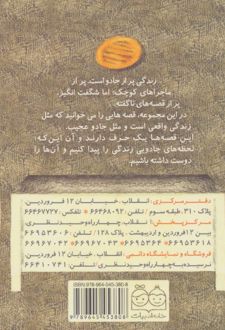 زندگی پر از جادو است. پر از
ماجراهای کوچک؛ اما شگفت انگیز.
پر از قصه‌های ناگفته.
در این مجموعه، قصه هایی را می خوانید که مثل
زندگی واقعی است و مثل جادو عجیب.
این قصه‌ها یک حرف دارند و آن این‌که:
لحظه‌های جادویی زندگی را پیدا کنیم و آن‌ها را
دوست داشته باشیم.
دفتر مرکزی: انقلاب، خیابان ۱۲ فروردین،
پلاک ۳۱۰، طبقه سوم / تلفن: ۶۶۴۶۸۰۹۲ / تلفکس: ۶۶۴۶۷۷۲۷
مرکز پخش: انقلاب، چهارراه وحید نظری،
بین ۱۲ فروردین و اردیبهشت، پلاک ۱۲۸ / تلفن: ۶۶۹۵۳۶۰۶
۶۶۹۵۳۶۱۸ - ۶۶۹۶۷۰۴۳ - ۶۶۹۶۷۰۴۲
فروشگاه و نمایشگاه دائمی: انقلاب، خیابان ۱۲ فروردین،
نرسیده به چهارراه وحید نظری / تلفن: ۶۶۴۱۰۷۴۱
ISBN: 978-964-045-380-8
9 789640 453808
خانه ادبیات